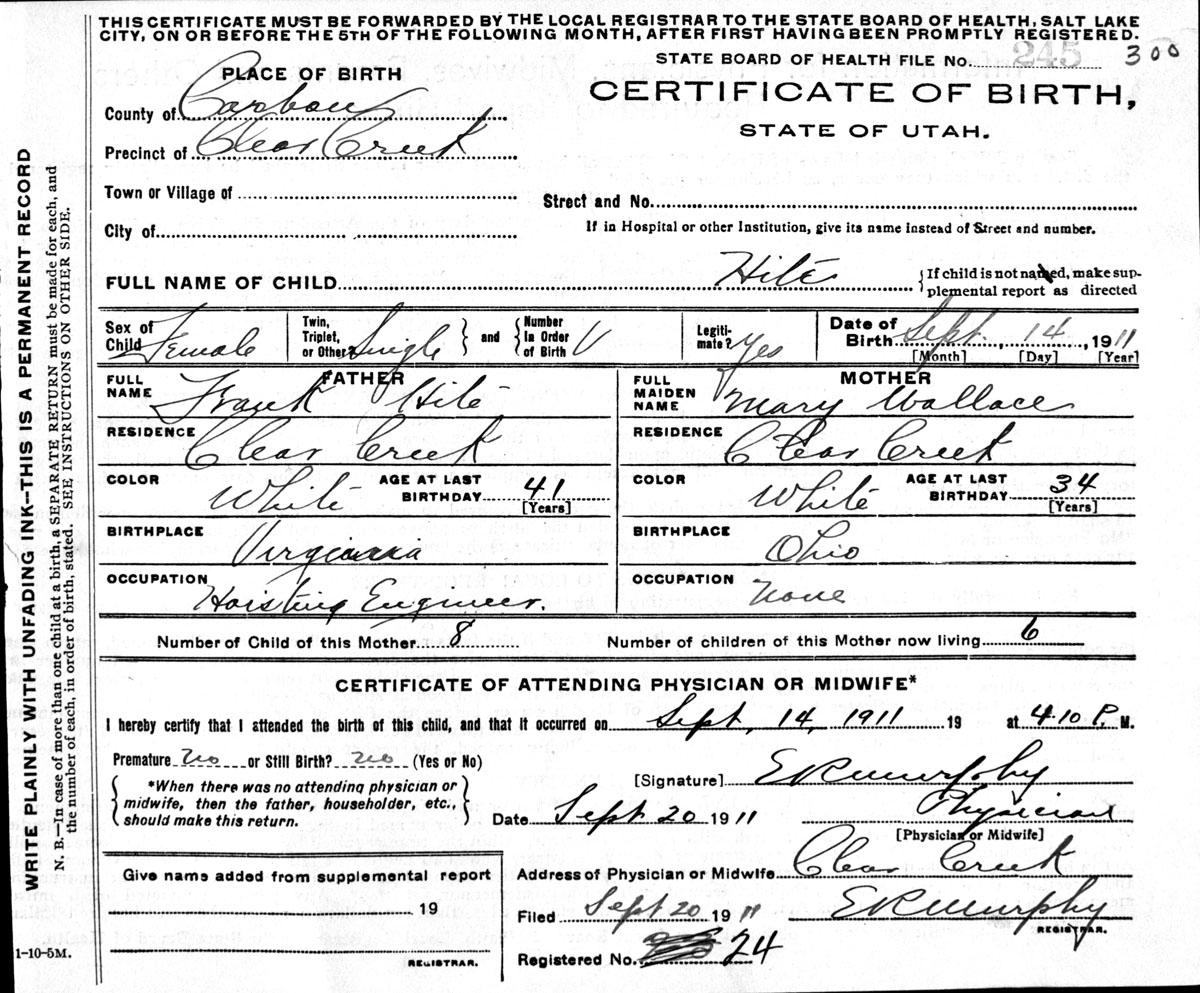 THIS CERTIFICATE MUST BE FORWARDED BY THE LOCAL REGISTRAR TO THE STATE BOARD OF HEALTH, SALT LAKE
CITY, ON OR BEFORE THE 5TH OF THE FOLLOWING MONTH, AFTER FIRST HAVING BEEN PROMPTLY REGISTERED.
STATE BOARD OF HEALTH FILE No. 245 300
PLACE OF BIRTH
CERTIFICATE OF BIRTH,
STATE OF UTAH.
County of Carbon
Precinct of Clear Creek
Town or Village of
Street and No.
City of
If in Hospital or other Institution, give its name instead of Street and number.
FULL NAME OF CHILD Hite
If child is not named, make sup-
plemental report as directed
Sex of Child Female
Twin, Triplet, or Other? Single and
Number in Order of Birth
Legiti-mate? Yes
Date of Birth Sept. 14, 1911
[Month] [Day] [Year]
FATHER
FULL NAME Frank Hite
MOTHER
FULL MAIDEN NAME Mary Wallace
RESIDENCE Clear Creek
RESIDENCE Clear Creek
COLOR White AGE AT LAST BIRTHDAY 41 [Years]
COLOR White AGE AT LAST BIRTHDAY 34 [Years]
BIRTHPLACE Virginia
BIRTHPLACE Ohio
OCCUPATION Hoisting Engineer.
OCCUPATION None
Number of Child of this Mother 8
Number of children of this Mother now living 6
CERTIFICATE OF ATTENDING PHYSICIAN OR MIDWIFE*
I hereby certify that I attended the birth of this child, and that it occurred on Sept, 14, 1911 19 at 4.10 P. M.
Premature No or Still Birth? No (Yes or No)
[Signature] E R Murphy
*When there was no attending physician or
midwife, then the father, householder, etc.,
should make this return.
Date Sept 20 1911
Physician
[Physician or Midwife]
Address of Physician or Midwife Clear Creek
Give name added from supplemental report
19
REGISTRAR.
Filed Sept 20 1911 E R Murphy
REGISTRAR.
Registered No. 24
1-10-5M.
WRITE PLAINLY WITH UNFADING INK—THIS IS A PERMANENT RECORD
N. B.—In case of more than one child at a birth a SEPARATE RETURN must be made for each, and
the number of each, in order of birth, stated. SEE INSTRUCTIONS ON OTHER SIDE.